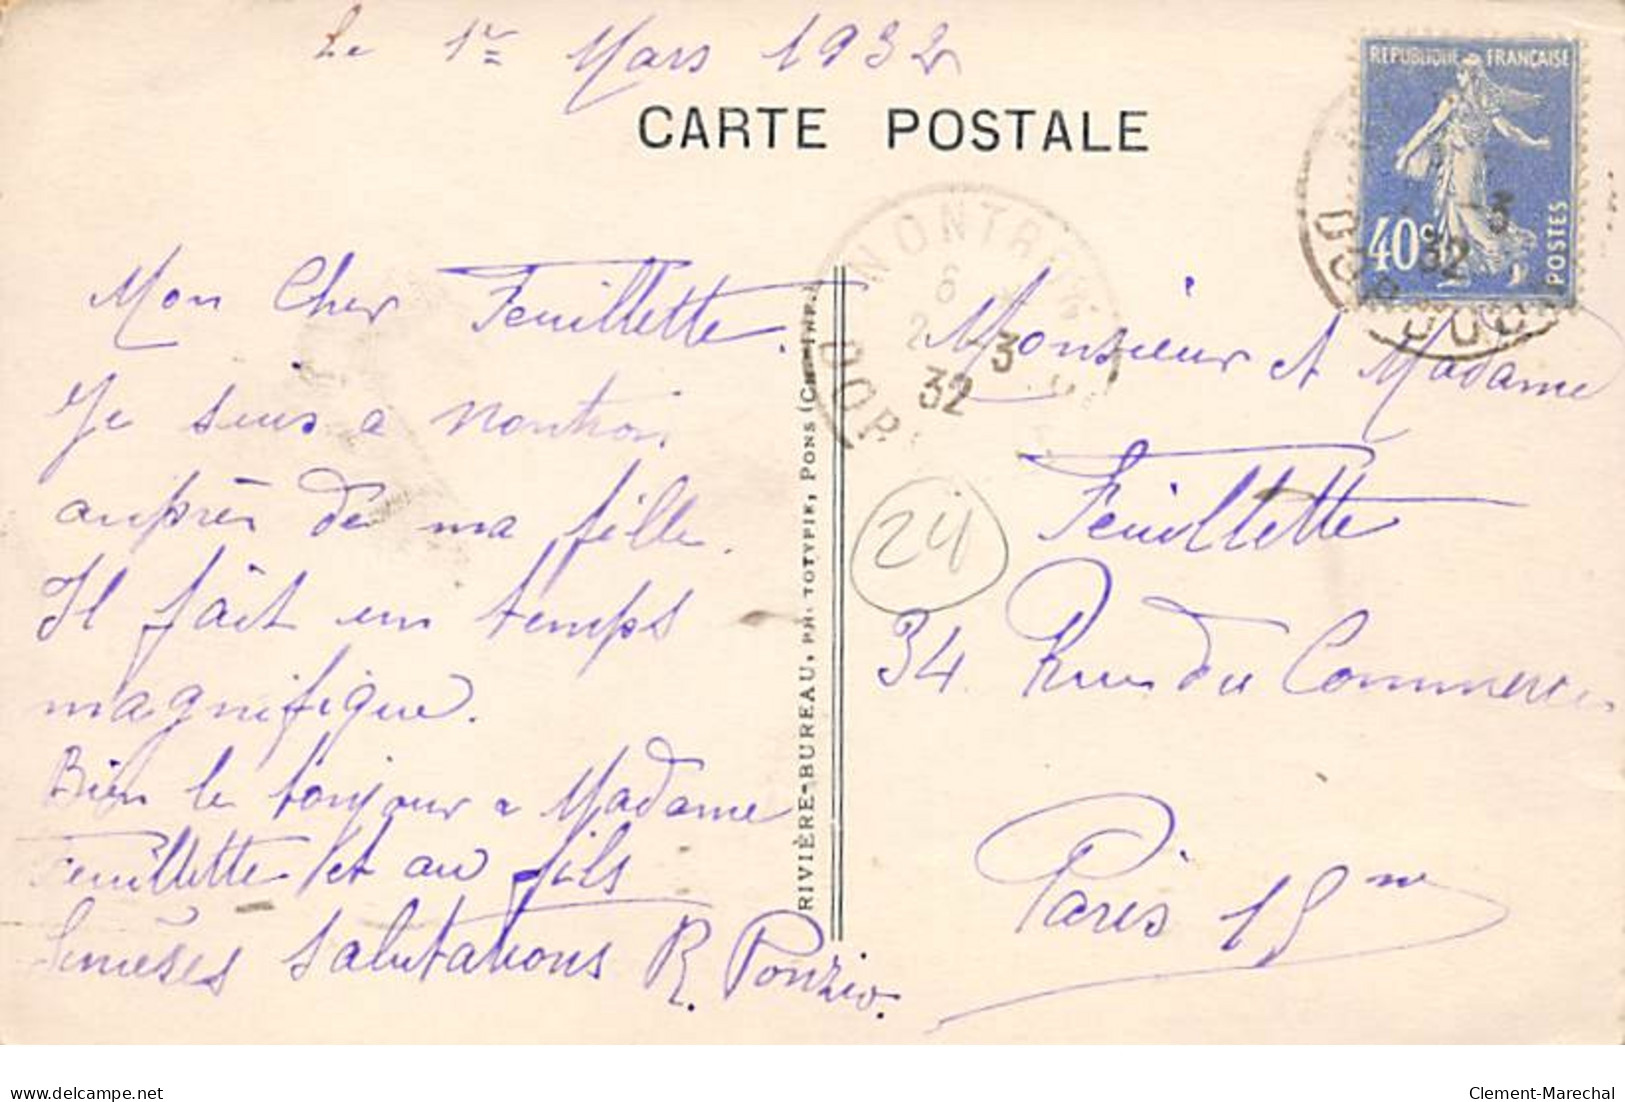 Le 1er Mars 1932
CARTE POSTALE
REPUBLIQUE FRANÇAISE
40c
POSTES
-3
32
DOR
MONTR
6
2 -3
32
DOR
Mon Cher Feuillette.
Je suis a Nontron
auprès de ma fille.
Il fait un temps
magnifique.
Bien le bonjour a Madame
Feuillette et au fils
Salutations R. Ponzio.
RIVIÈRE-BUREAU, PHOTOTYPIE, PONS (Ch.-Inf.)
24
Monsieur et Madame
Feuillette
34 Rue du Commerce
Paris 15me
delcampe.net
Clement-Marechal